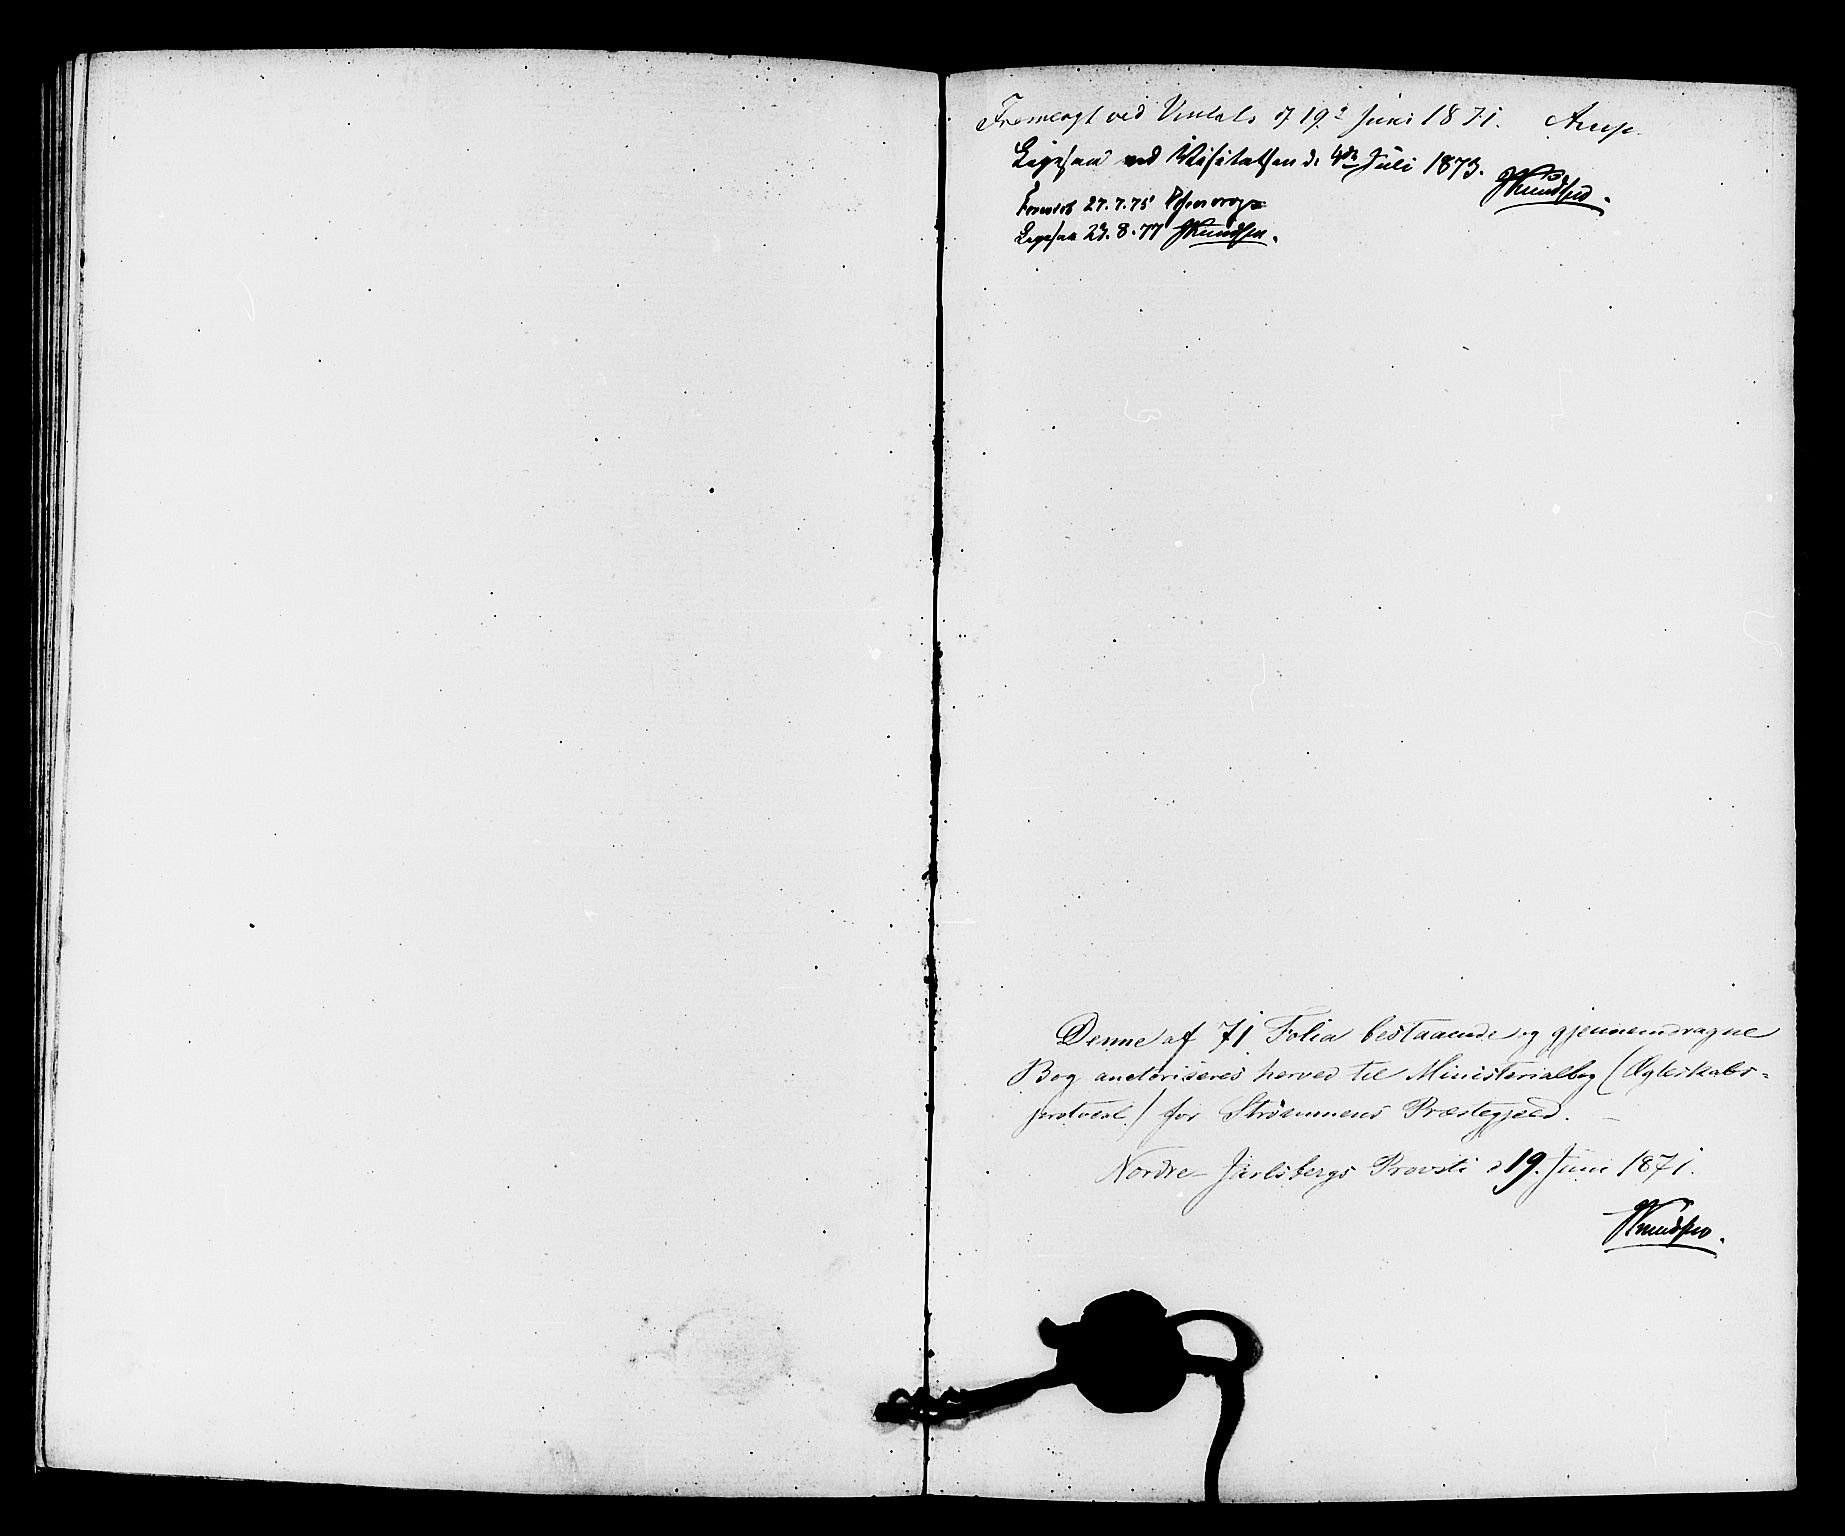 Fremlagt ved Visitats d 19de Juni 1871. Arup.
Ligesaa ved Visitatsen d. 4de Juli 1873. JKnudsen.
Foreviist 27.7.75
Ligesaa 23.8.77 JKnudsen.
Denne af 71 Folia bestaaende og gjennemdragne
Bog auctoriseres herved til Ministerialbog (Ægteskabs-
protocol) for Strömmens Præstegjeld.
Nordre-Jarlsbergs Provsti d 19. Juni 1871.
JKnudsen.